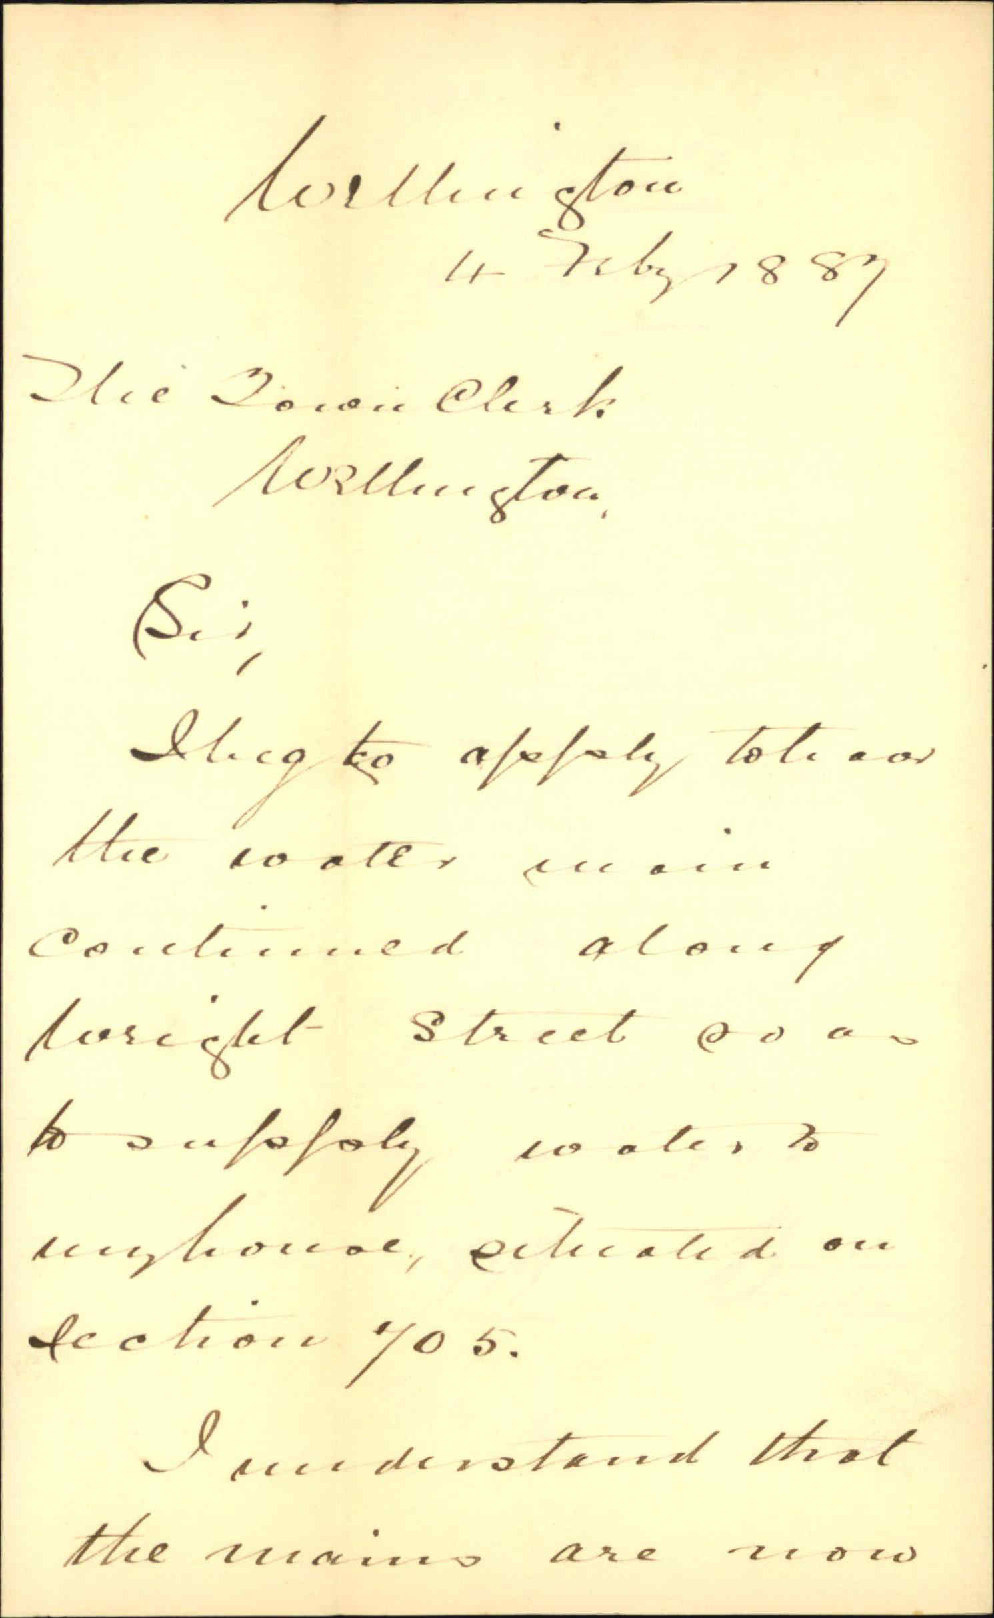 Wellington
4 Feby 1887
The Town Clerk
Wellington,
Sir,
I beg to apply to have
the water main
continued along
Wright Street so as
to supply water to
my house, situated on
Section 705.
I understand that
the mains are now